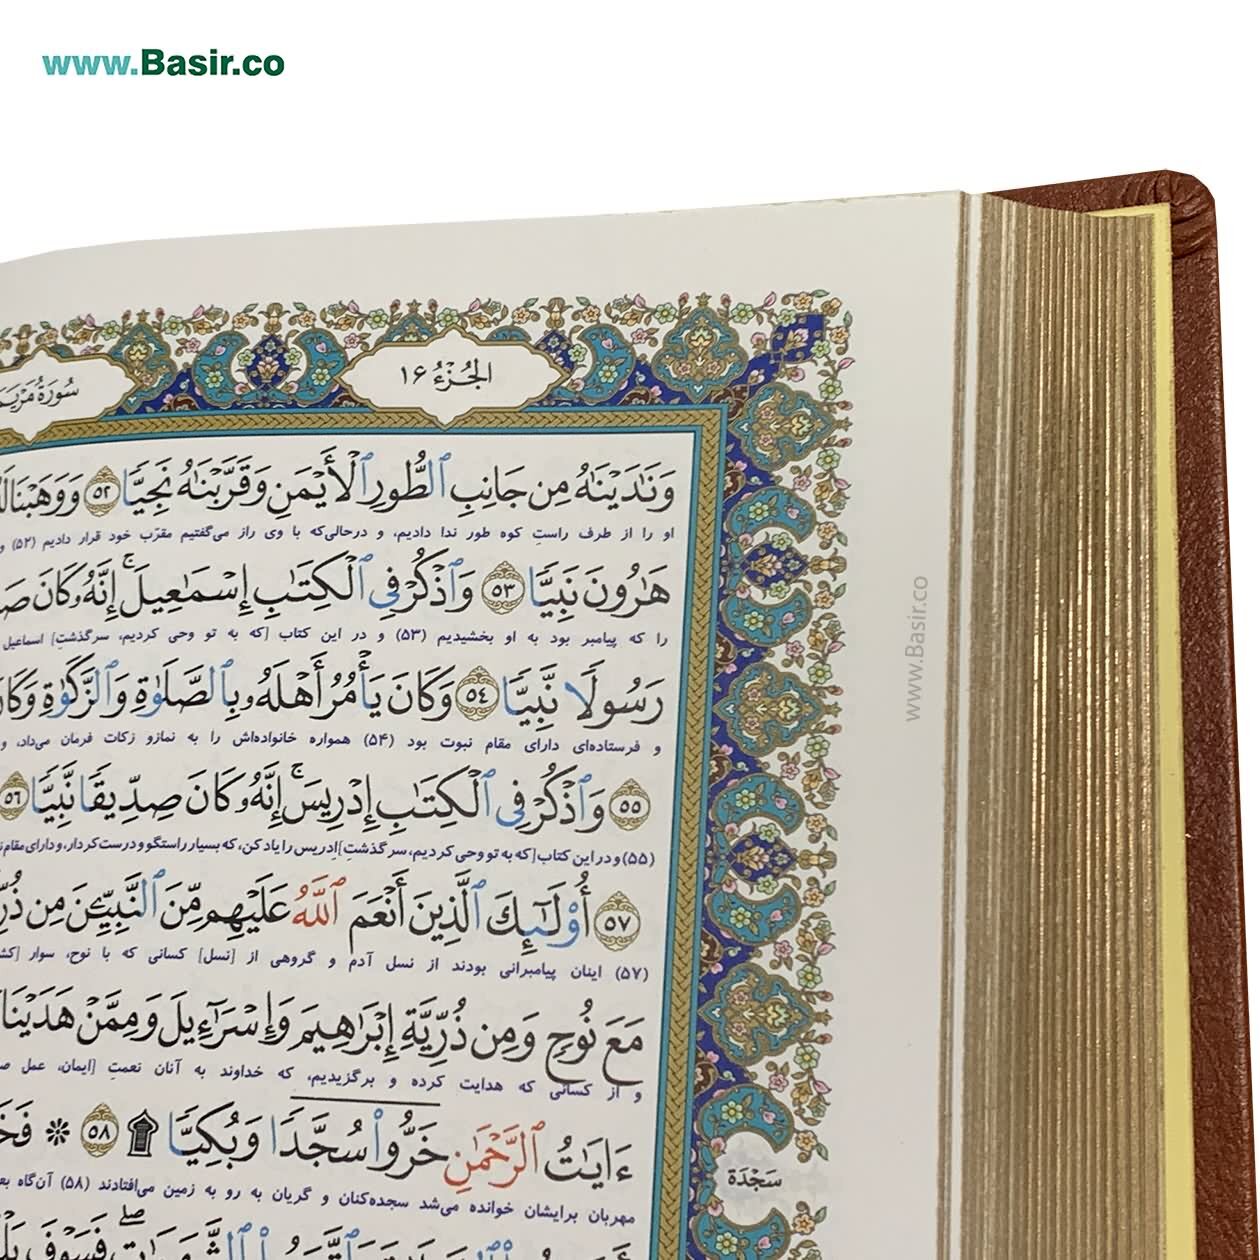 www.Basir.co
الجُزْءُ ١۶
سُورَةُ مَريَم
وَنَٰدَيْنَٰهُ مِن جَانِبِ ٱلطُّورِ ٱلْأَيْمَنِ وَقَرَّبْنَٰهُ نَجِيًّا ۝٥٢ وَوَهَبْنَا
او را از طرف راستِ کوه طور ندا دادیم، و درحالی‌که با وی راز می‌گفتیم مقرّب خود قرار دادیم (۵۲) و
هَٰرُونَ نَبِيًّا ۝٥٣ وَٱذْكُرْ فِي ٱلْكِتَٰبِ إِسْمَٰعِيلَ ۚ إِنَّهُۥ كَانَ
را که پیامبر بود به او بخشیدیم (۵۳) و در این کتاب [که به تو وحی کردیم، سرگذشتِ] اسماعیل
رَسُولًا نَّبِيًّا ۝٥٤ وَكَانَ يَأْمُرُ أَهْلَهُۥ بِٱلصَّلَوٰةِ وَٱلزَّكَوٰةِ وَكَانَ
و فرستاده‌ای دارای مقام نبوت بود (۵۴) همواره خانواده‌اش را به نمازو زکات فرمان می‌داد، و
۝٥٥ وَٱذْكُرْ فِي ٱلْكِتَٰبِ إِدْرِيسَ ۚ إِنَّهُۥ كَانَ صِدِّيقًا نَّبِيًّا ۝٥٦
(۵۵) و در این کتاب [که به تو وحی کردیم، سرگذشتِ] اِدریس را یاد کن، که بسیار راستگو و درست کردار، و دارای مقام
۝٥٧ أُو۟لَٰٓئِكَ ٱلَّذِينَ أَنْعَمَ ٱللَّهُ عَلَيْهِم مِّنَ ٱلنَّبِيِّۦنَ مِن
(۵۷) اینان پیامبرانی بودند از نسل آدم و گروهی از [نسل] کسانی که با نوح، سوار
مَعَ نُوحٍ وَمِن ذُرِّيَّةِ إِبْرَٰهِيمَ وَإِسْرَٰٓءِيلَ وَمِمَّنْ هَدَيْنَا
و از کسانی که هدایت کرده و برگزیدیم، که خداوند به آنان نعمتِ [ایمان، عمل
ءَايَٰتُ ٱلرَّحْمَٰنِ خَرُّوا۟ سُجَّدًا وَبُكِيًّا ۩ ۝٥٨
سَجْدَة
مهربان برایشان خوانده می‌شد سجده‌کنان و گریان به رو به زمین می‌افتادند (۵۸) آن‌گاه
فَسَوْفَ
www.Basir.co